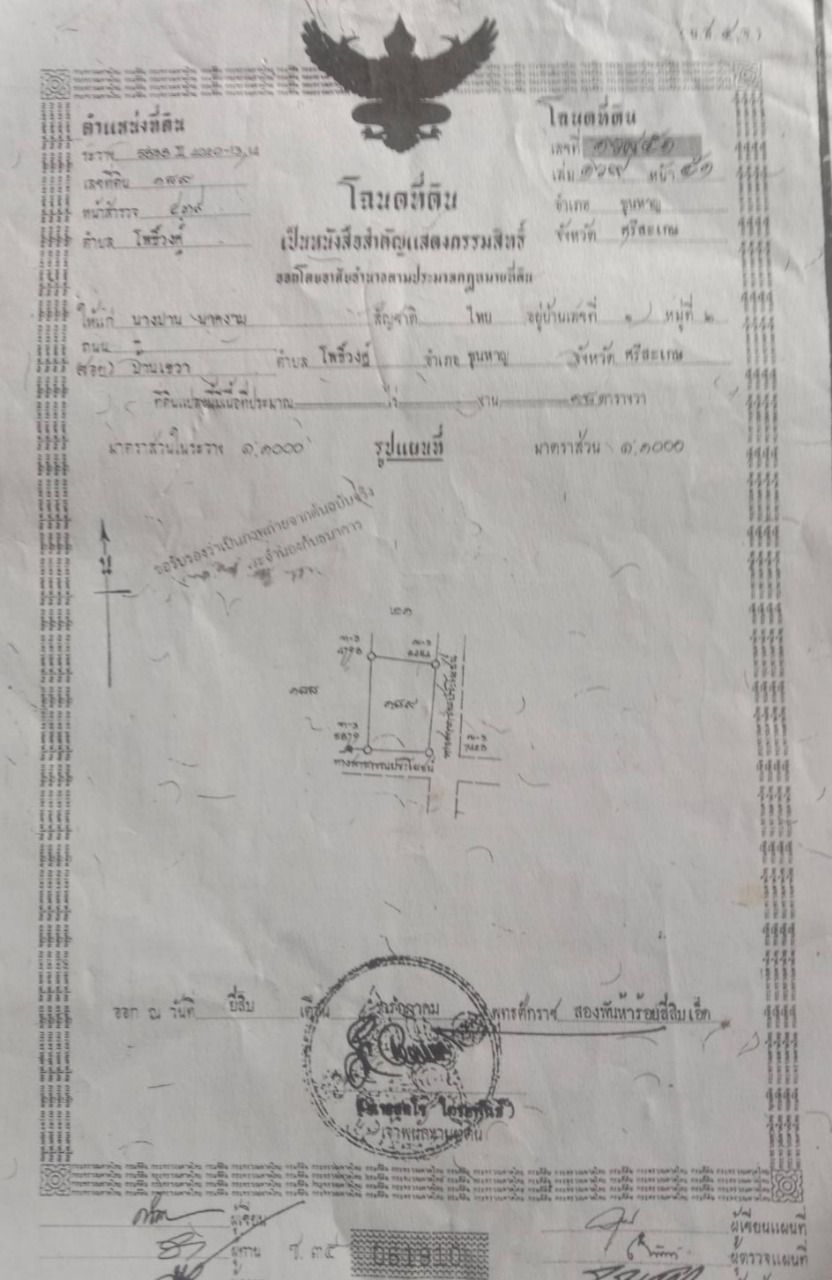 (น.ส.๔ จ.)
ตำแหน่งที่ดิน
ระวาง 5838 II 4020-13,14
เลขที่ดิน ๑๘๙
หน้าสำรวจ ๔๓๙
ตำบล โพธิ์วงศ์
โฉนดที่ดิน
เลขที่
เล่ม ๑๖๙ หน้า ๕๑
อำเภอ ขุนหาญ
จังหวัด ศรีสะเกษ
โฉนดที่ดิน
เป็นหนังสือสำคัญแสดงกรรมสิทธิ์
ออกโดยอาศัยอำนาจตามประมวลกฎหมายที่ดิน
ให้แก่ นางปาน นาคงาม สัญชาติ ไทย อยู่บ้านเลขที่ ๑ หมู่ที่ ๒
ถนน -
(ซอย) บ้านเขวา ตำบล โพธิ์วงศ์ อำเภอ ขุนหาญ จังหวัด ศรีสะเกษ
ที่ดินแปลงนี้มีเนื้อที่ประมาณ ไร่ งาน ตารางวา
มาตราส่วนในระวาง ๑:๑๐๐๐ รูปแผนที่ มาตราส่วน ๑:๑๐๐๐
ขอรับรองว่าเป็นภาพถ่ายจากต้นฉบับจริง
น
๑๘๘
๑๘๙
ทางสาธารณประโยชน์
ทางสาธารณประโยชน์
ออก ณ วันที่ ยี่สิบ เดือน พุทธศักราช สองพันห้าร้อยสี่สิบเอ็ด
เจ้าพนักงานที่ดิน
ผู้เขียน
ผู้ทาน
ช. ๓๕
ผู้เขียนแผนที่
ผู้ตรวจแผนที่